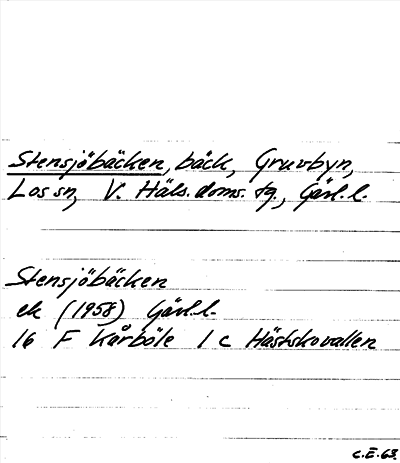 Stensjöbäcken, bäck, Gruvbyn,
Los sn, V. Häls. doms. tg., Gävl. l.
Stensjöbäcken
ek (1958) Gävl. l.
16 F Kårböle 1 c Hästskovallen
C.E. 63.